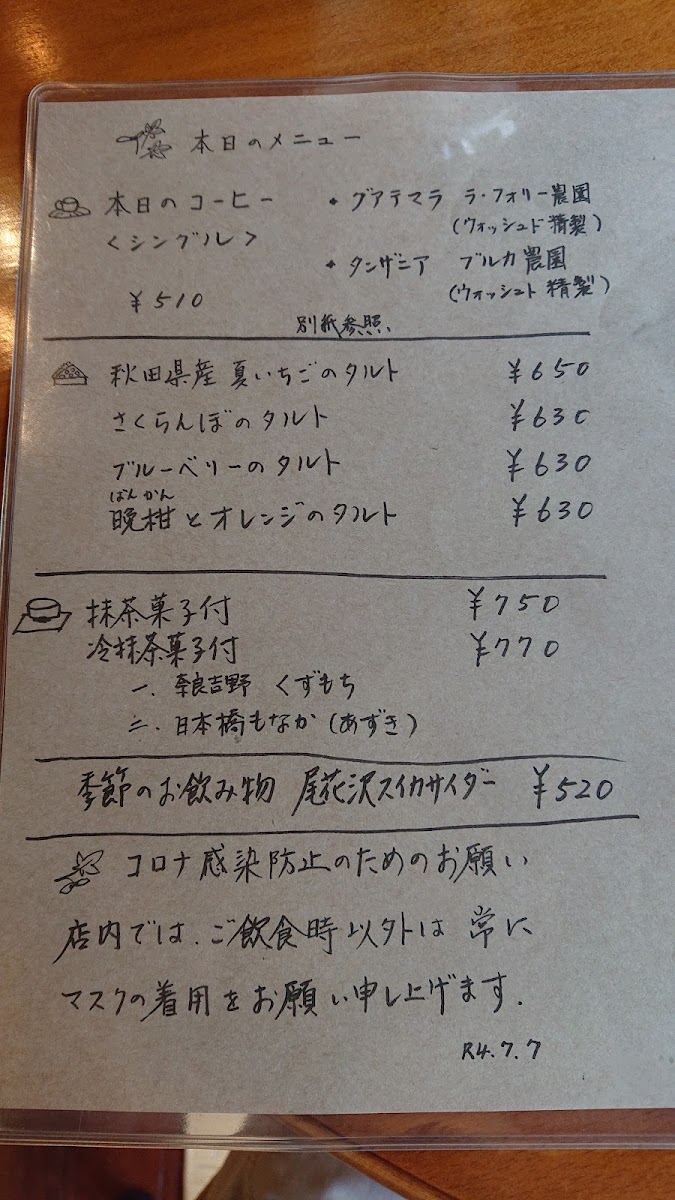 本日のメニュー
本日のコーヒー ・グアテマラ ラ・フォリー農園
(ウォッシュド精製)
<シングル>
・タンザニア ブルカ農園
(ウォッシュト精製)
¥510
別紙参照、
秋田県産 夏いちごのタルト ¥650
さくらんぼのタルト ¥630
ブルーベリーのタルト ¥630
ばんかん
晩柑とオレンジのタルト ¥630
抹茶菓子付 ¥750
冷抹茶菓子付 ¥770
一、奈良吉野 くずもち
二、日本橋もなか(あずき)
季節のお飲み物 尾花沢スイカサイダー ¥520
コロナ感染防止のためのお願い
店内では、ご飲食時以外は常に
マスクの着用をお願い申し上げます.
R4.7.7